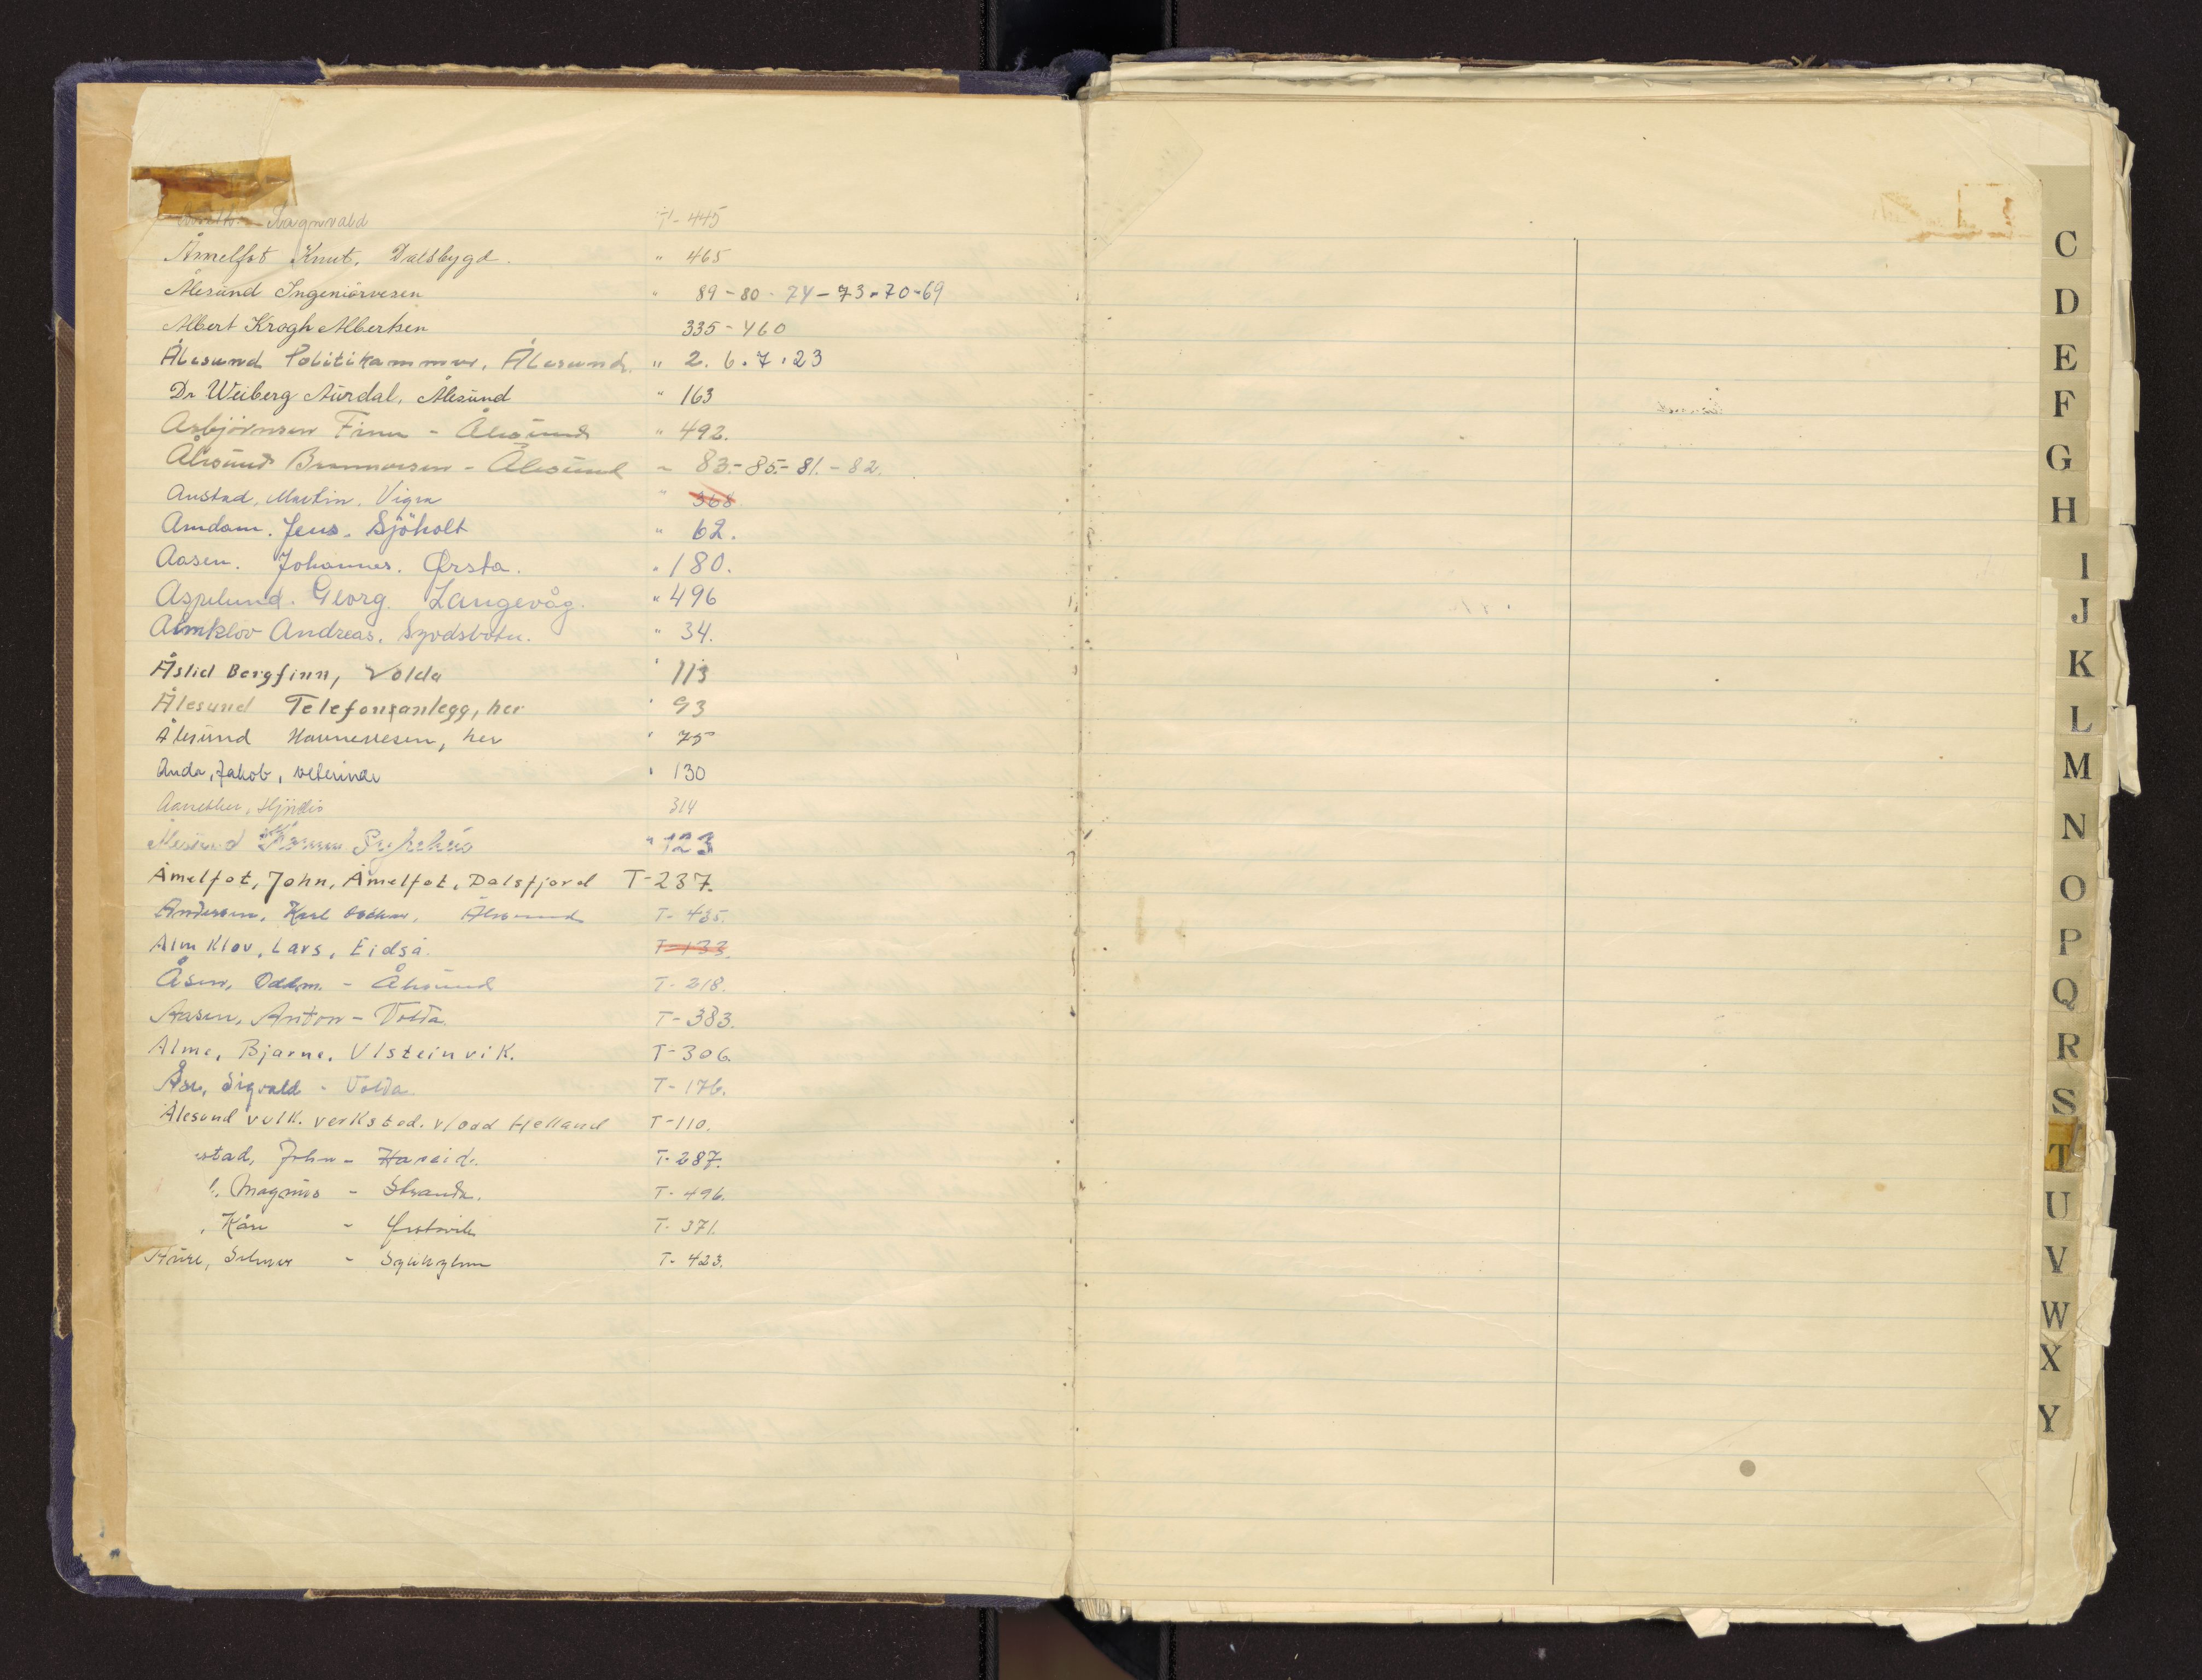 Ragnvald T-445
Åmelfot Knut, Dalsbygd. " 465
Ålesund Ingeniörvesen " 89-80-74-73-70-69
Albert Krogh Albertsen 335-460
Ålesund Politikammer, Ålesund. " 2. 6. 7. 23
Dr Weiberg Aurdal, Ålesund " 163
Asbjörnsen Finn - Ålesund " 492.
Ålesund Brannvesen - Ålesund " 83.-85.-81.-82.
Austad, Martin. Vigra " 368
Amdam. Jens. Sjöholt " 62.
Aasen. Johannes. Ørsta. " 180.
Aspelund. Georg. Langevåg. " 496
Almklov Andreas. Syvdsbotn. " 34.
Åslid Bergfinn, Volda " 113
Ålesund Telefonanlegg, her " 93
Ålesund Havnevesen, her " 75
Anda, Jakob, veterinær " 130
314
Ålesund Komm Sykehus " 123
Åmelfot, John, Åmelfot, Dalsfjord T-237.
Andersen, Karl Ålesund T-435.
Almklov, Lars, Eidså. T-133.
Åsen, Odd m. - Ålesund T-218.
Aasen, Anton - Volda T-383.
Alme, Bjarne, Ulsteinvik. T-306.
Åse, Sigvald - Volda T-176.
Ålesund vulk. verksted. v/Odd Helland T-110.
stad, John - Hareid. T-287.
Magnus - Stranda. T-496.
, Kåre - T-371.
Aure, Selmer - Sykkylven T-423.
C
D
E
F
G
H
I
J
K
L
M
N
O
P
Q
R
S
T
U
V
W
X
Y